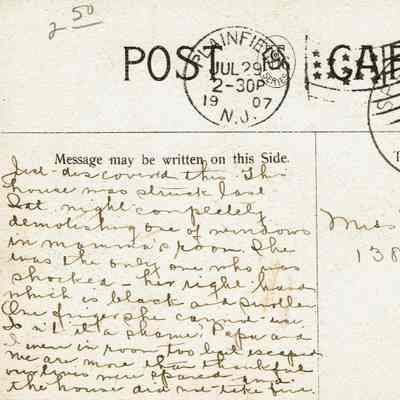 2 50
POST CAR
PLAINFIELD
JUL 29
2-30P
1907
N.J.
Message may be written on this Side.
T
Just discovered this. This
house was struck last
Sat. night completely
demolishing one of windows
in mamma's room. She
was the only one who was
shocked - her right hand
which is black and swollen
One finger she cannot use.
Is n't it a shame, Papa and
I were in room too but escaped
We are more than thankful
our lives were spared and
the house did not take fire.
Miss
138